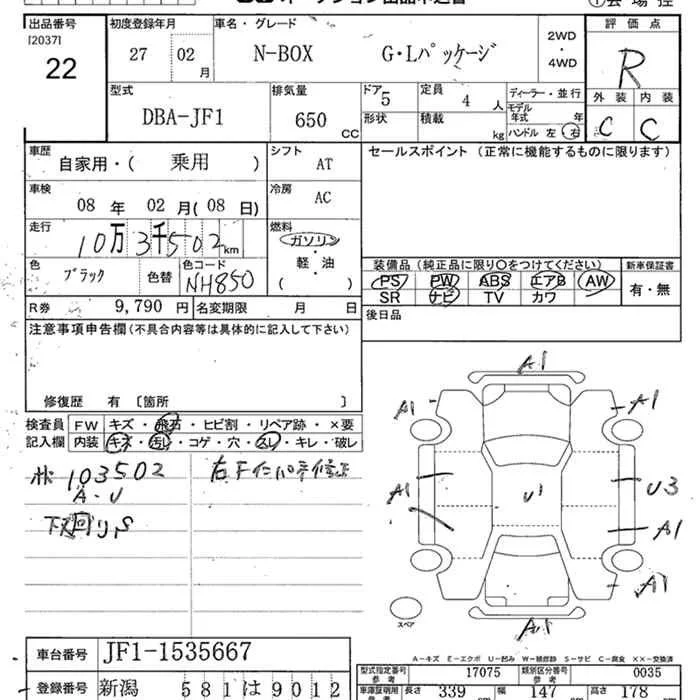 出品番号 初度登録年月 車名・グレード 評価点
[2037]
22 27 02 月 N-BOX G・Lパッケージ 2WD・4WD R
型式 排気量 ドア 定員 ディーラー・並行 外装 内装
DBA-JF1 650 CC 5 4 人 モデル年式 年 C C
形状 積載 kg ハンドル 左 右
車歴 シフト セールスポイント (正常に機能するものに限ります)
自家用・( 乗用 ) AT
車検 冷房
08 年 02 月(08 日) AC
走行 燃料
10万3千502km ガソリン
軽・油
( )
色 色替 色コード
ブラック NH850
装備品 (純正品に限り○をつけてください) 新車保証書
PS PW ABS エアB AW 有・無
SR ナビ TV カワ
R券 9,790 円 名変期限 月 日
後日品
注意事項申告欄(不具合内容等は具体的に記入して下さい)
修復歴 有 [箇所 ]
検査員 FW キズ・飛石・ヒビ割・リペア跡・×要
記入欄 内装 キズ・汚レ・コゲ・穴・スレ・キレ・破レ
103502
A・U
A1
A1 A1
A1 U1 U3
A1
A1
A1
スペア
A=キズ E=エクボ U=凹み W=補修跡 S=サビ C=腐食 XX=交換済
車台番号 JF1-1535667
型式指定番号 参考 17075 類別区分番号 参考 0035
登録番号 新潟 581 は 9012
車庫証明用 参考 長さ 339 cm 幅 147 cm 高さ 178 cm